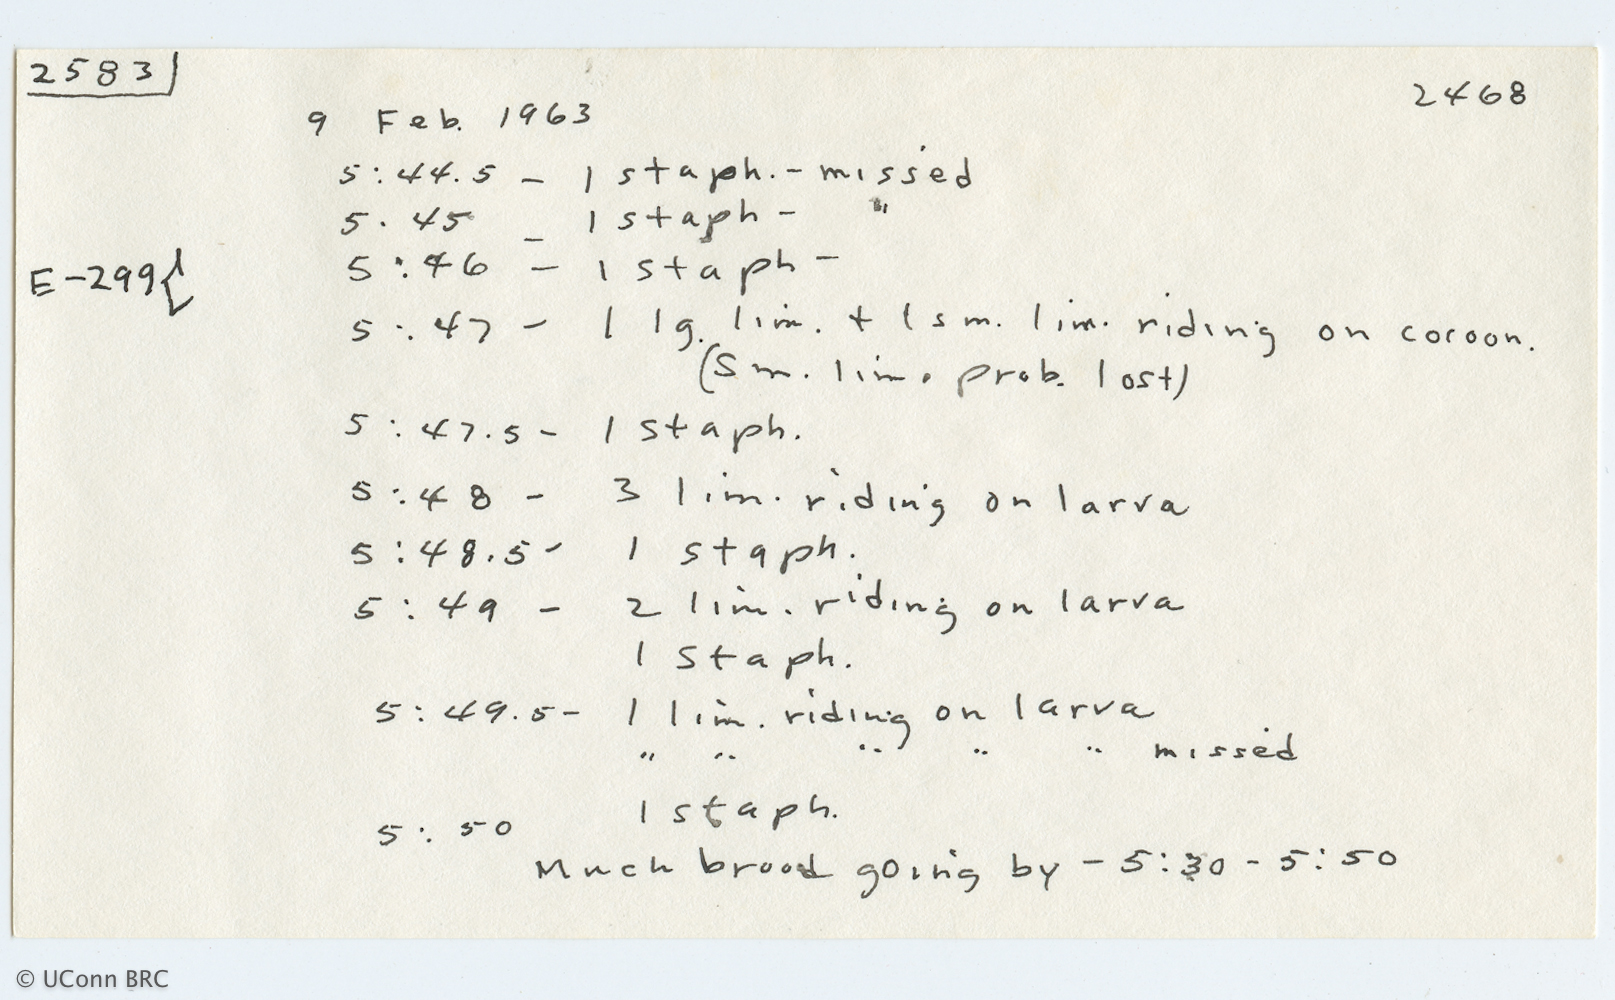 2583
2468
9 Feb. 1963
5:44.5 - 1 staph. - missed
5:45 - 1 staph - "
5:46 - 1 staph -
E-299{
5:47 - 1 lg. lim. + 1 sm. lim. riding on cocoon.
(Sm. lim. prob. lost)
5:47.5 - 1 staph.
5:48 - 3 lim. riding on larva
5:48.5 - 1 staph.
5:49 - 2 lim. riding on larva
1 staph.
5:49.5 - 1 lim. riding on larva
" " " " " missed
1 staph.
5:50
Much brood going by - 5:30 - 5:50
© UConn BRC